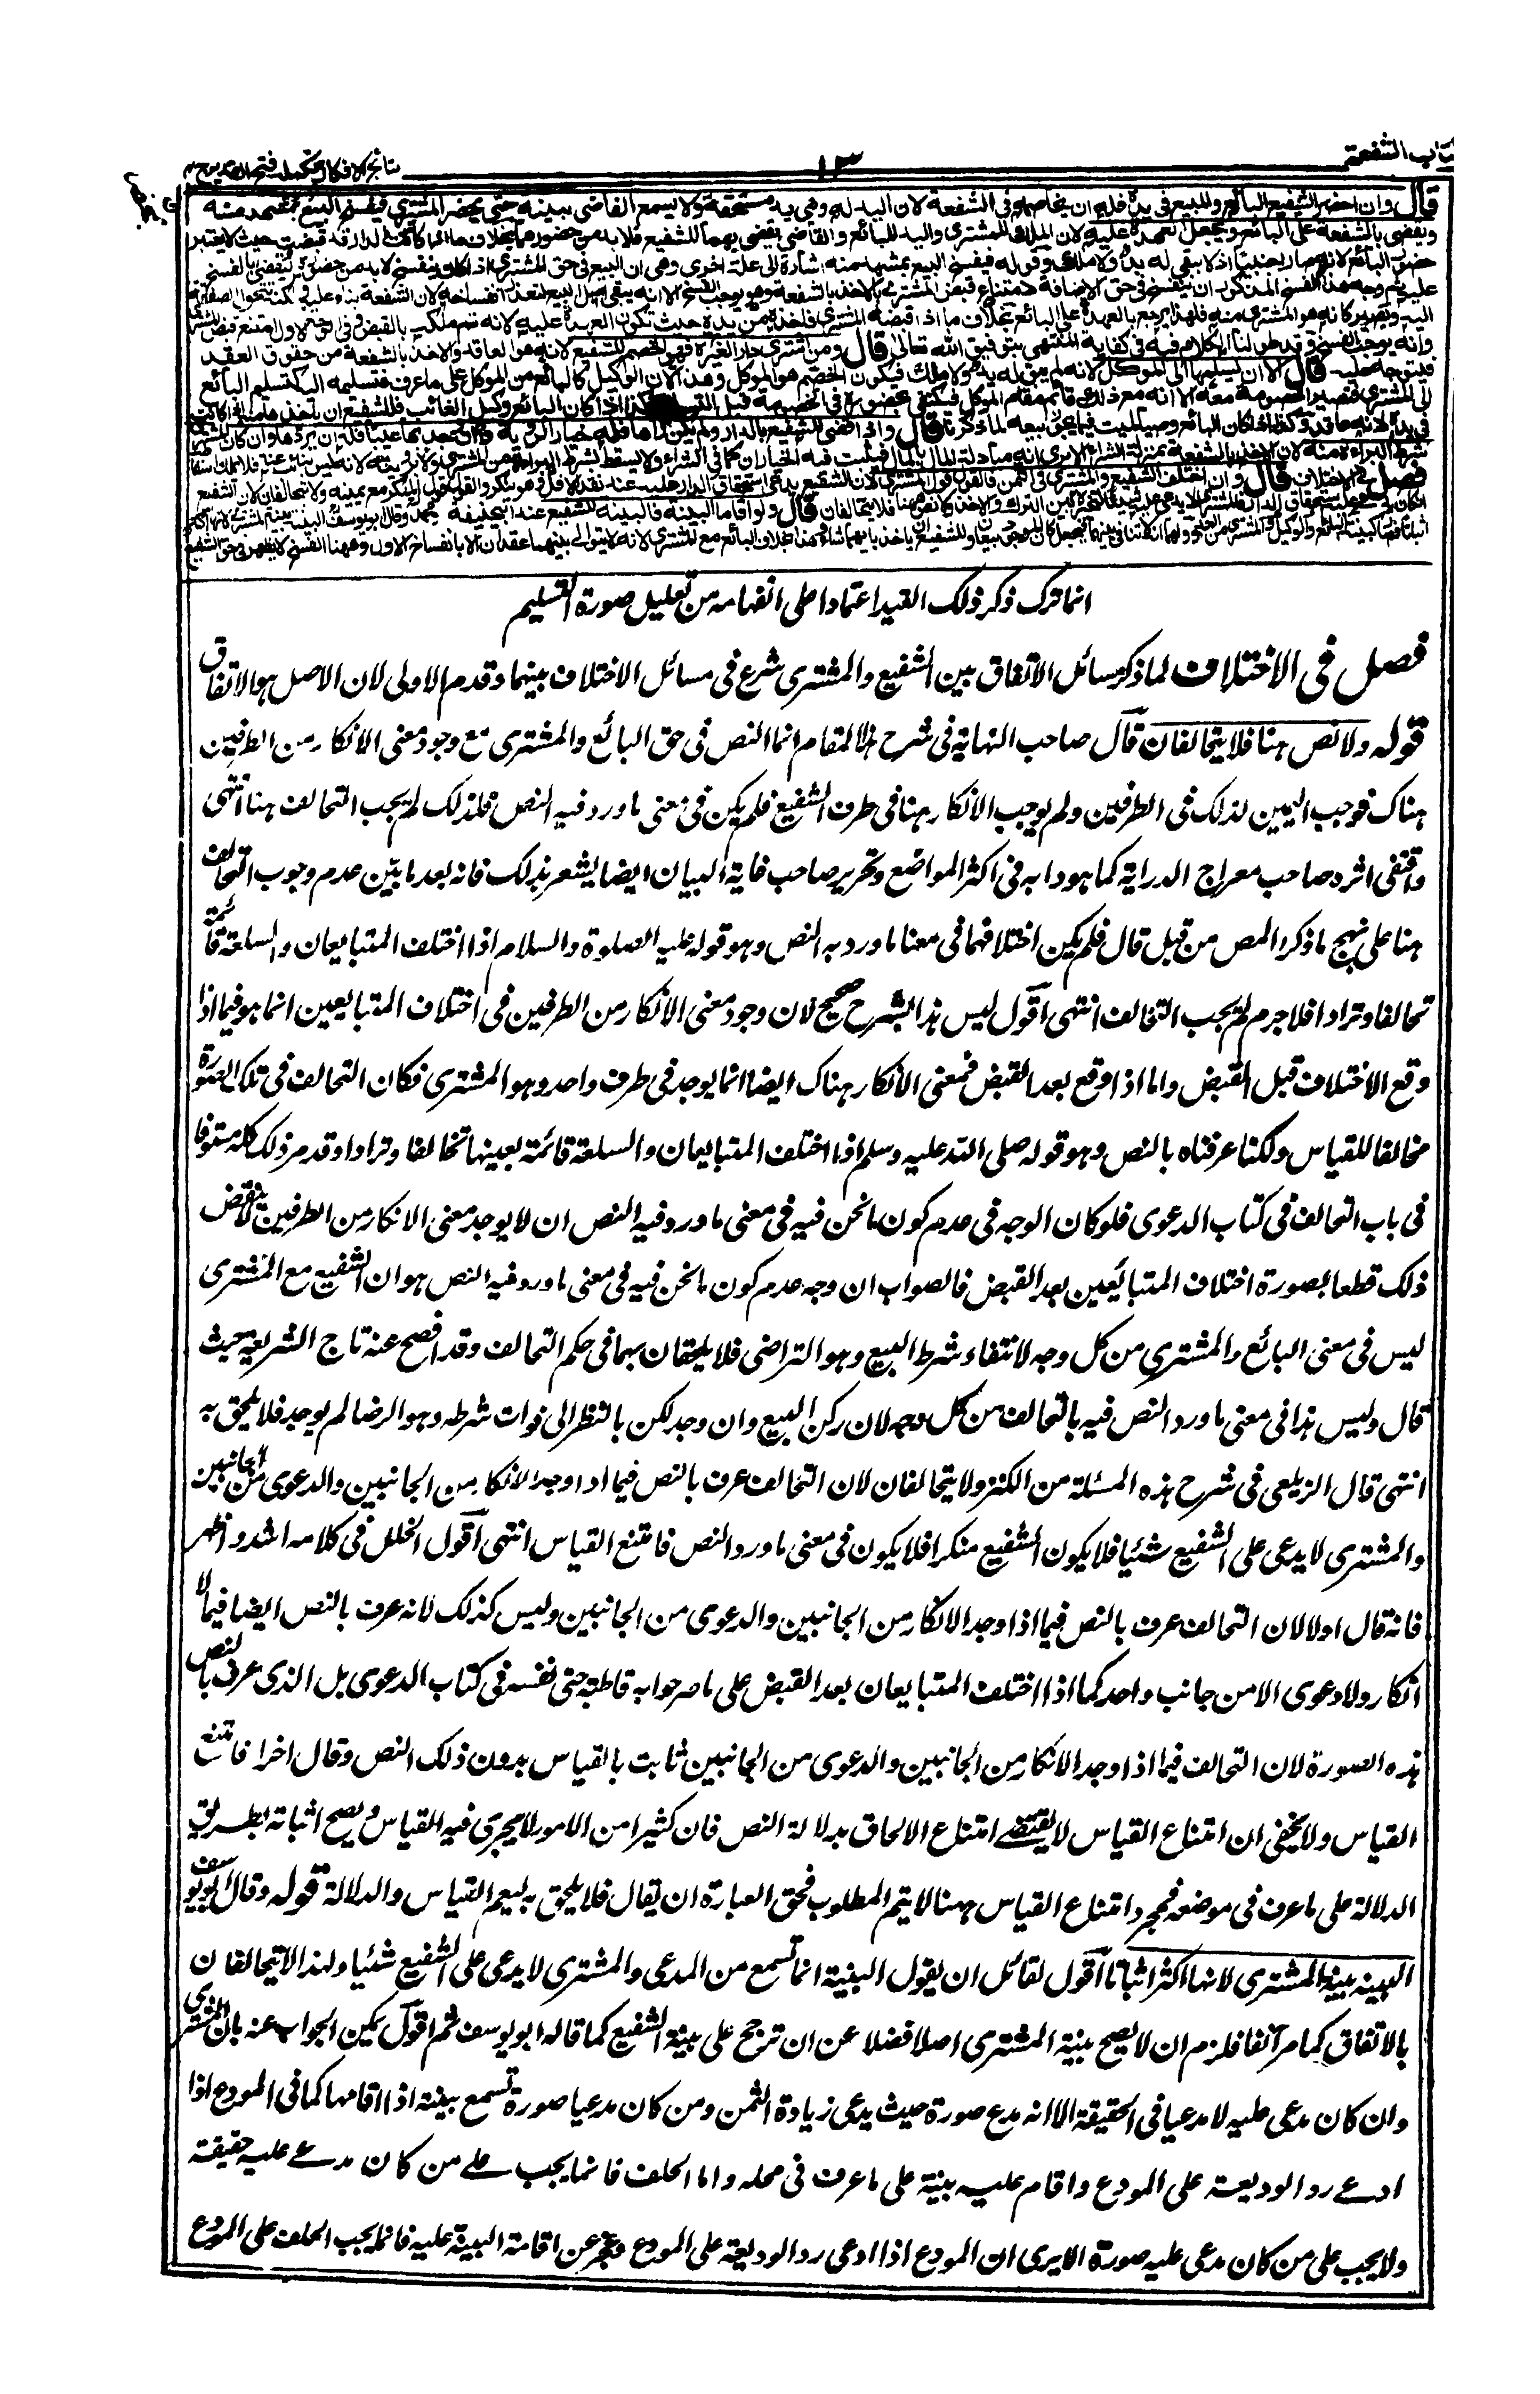 كتاب الشفعة
١٣
نتائج الافكار تكملة فتح القدير ج ٤
قال وان احضر الشفيع البائع والمبيع فى يده فله ان يخاصمه فى الشفعة لان اليد له وهى يد مستحقة ولا يسمع القاضى البينة حتى يحضر المشترى فيفسخ البيع بمشهد منه
ويقضى بالشفعة على البائع ويجعل العهدة عليه لان الملك للمشترى واليد للبائع والقاضى يقضى بهما للشفيع فلا بد من حضورهما بخلاف ما اذا كانت الدار قد قبضت حيث لا يعتبر
حضور البائع لانه صار اجنبيا اذ لا يبقى له يد ولا ملك وقوله فيفسخ البيع بمشهد منه اشارة الى علة اخرى وهى ان البيع فى حق المشترى اذا كان ينفسخ لا بد من حضوره ليقضى بالفسخ
عليه ثم وجه هذا الفسخ المذكور ان ينفسخ فى حق الاضافة لامتناع قبض المشترى بالاخذ بالشفعة وهو يوجب الفسخ الا انه يبقى اصل البيع لتعذر انفساخه لان الشفعة بناء عليه ولكنه تتحول الصفقة
اليه ويصير كانه هو المشترى منه فلهذا يرجع بالعهدة على البائع بخلاف ما اذا قبضه المشترى فاخذه من يده حيث تكون العهدة عليه لانه تم ملكه بالقبض وفى الوجه الاول امتنع قبض المشترى
وانه يوجب الفسخ وقد طولنا الكلام فيه فى كفاية المنتهى بتوفيق الله تعالى قال ومن اشترى دارا لغيره فهو الخصم للشفيع لانه هو العاقد والاخذ بالشفعة من حقوق العقد
فيتوجه عليه قال الا ان يسلمها الى الموكل لانه لم يبق له يد ولا ملك فيكون الخصم هو الموكل وهذا لان الوكيل كالبائع من الموكل على ما عرف فتسليمه اليه كتسليم البائع
الى المشترى فتصير الخصومة معه الا انه مع ذلك قائم مقام الموكل فيكتفى بحضوره فى الخصومة قبل التسليم وكذا اذا كان البائع وكيل الغائب فللشفيع ان ياخذها منه اذا كانت
فى يده لانه عاقد وكذا اذا كان البائع وصيا لميت فيما يجوز بيعه لما ذكرنا قال واذا قضى للشفيع بالدار ولم يكن رآها فله خيار الرؤية وان وجد بها عيبا فله ان يردها وان كان المشترى
شرط البراءة منه لان الاخذ بالشفعة بمنزلة الشراء الا يرى انه مبادلة المال بالمال فيثبت فيه الخياران كما فى الشراء ولا يسقط بشرط البراءة من المشترى ولا برؤيته لانه ليس بنائب عنه فلا يملك اسقاطه
فصل فى الاختلاف قال وان اختلف الشفيع والمشترى فى الثمن فالقول قول المشترى لان الشفيع يدعى استحقاق الدار عليه عند نقد الاقل وهو ينكر والقول قول المنكر مع يمينه ولا يتحالفان لان الشفيع
ان كان يدعى عليه استحقاق الدار فالمشترى لا يدعى عليه شيئا لتخيره بين الترك والاخذ ولا نص ههنا فلا يتحالفان قال ولو اقاما البينة فالبينة للشفيع عند ابى حنيفة ومحمد وقال ابو يوسف البينة بينة المشترى لانها اكثر
انما ترك ذكر ذلك القيد اعتمادا على انفهامه من تعليل صورة التسليم
فصل فى الاختلاف لما ذكر مسائل الاتفاق بين الشفيع والمشترى شرع فى مسائل الاختلاف بينهما وقدم الاولى لان الاصل هو الاتفاق
قوله ولا نص هنا فلا يتحالفان قال صاحب النهاية فى شرح هذا المقام انما النص فى حق البائع والمشترى مع وجود معنى الانكار من الطرفين
هناك فوجب اليمين لذلك فى الطرفين ولم يوجب الانكار هنا فى طرف الشفيع فلم يكن فى معنى ما ورد فيه النص فلذلك لم يجب التحالف هنا انتهى
واقتفى اثره صاحب معراج الدراية كما هو دابه فى اكثر المواضع وتحرير صاحب غاية البيان ايضا يشعر بذلك فانه بعد ما بين عدم وجوب التحالف
هنا على نهج ما ذكر المص من قبل قال فلم يكن اختلافهما فى معنا ما ورد به النص وهو قوله عليه الصلوة والسلام اذا اختلف المتبايعان والسلعة قائمة
تحالفا وترادا فلا جرم لم يجب التحالف انتهى اقول ليس هذا الشرح صحيح لان وجود معنى الانكار من الطرفين فى اختلاف المتبايعين انما هو فيما اذا
وقع الاختلاف قبل القبض واما اذا وقع بعد القبض فمعنى الانكار هناك ايضا انما يوجد فى طرف واحد وهو المشترى فكان التحالف فى تلك الصورة
مخالفا للقياس ولكنا عرفناه بالنص وهو قوله صلى الله عليه وسلم اذا اختلف المتبايعان والسلعة قائمة بعينها تحالفا وترادا وقد مر ذلك كله مستوفا
فى باب التحالف فى كتاب الدعوى فلو كان الوجه فى عدم كون ما نحن فيه فى معنى ما ورد فيه النص ان لا يوجد معنى الانكار من الطرفين لانتقض
ذلك قطعا بصورة اختلاف المتبايعين بعد القبض فالصواب ان وجه عدم كون ما نحن فيه فى معنى ما ورد فيه النص هو ان الشفيع مع المشترى
ليس فى معنى البائع والمشترى من كل وجه لانتفاء شرط البيع وهو التراضى فلا يلحقان بهما فى حكم التحالف وقد افصح عنه تاج الشريعة حيث
قال وليس هذا فى معنى ما ورد النص فيه بالتحالف من كل وجه لان ركن البيع وان وجد لكن بالنظر الى فوات شرطه وهو الرضا لم يوجد فلا يلحق به
انتهى قال الزيلعى فى شرح هذه المسئلة من الكنز ولا يتحالفان لان التحالف عرف بالنص فيما اذا وجد الانكار من الجانبين والدعوى من الجانبين
والمشترى لا يدعى على الشفيع شئيا فلا يكون الشفيع منكرا فلا يكون فى معنى ما ورد النص فامتنع القياس انتهى اقول الخلل فى كلامه اشد واظهر
فانه قال اولا لان التحالف عرف بالنص فيما اذا وجد الانكار من الجانبين والدعوى من الجانبين وليس كذلك لانه عرف بالنص ايضا فيما لا
انكار ولا دعوى الا من جانب واحد كما اذا اختلف المتبايعان بعد القبض على ما صرحوا به قاطبة حتى نفسه فى كتاب الدعوى بل الذى عرف بالنص
هذه الصورة لان التحالف فيما اذا وجد الانكار من الجانبين والدعوى من الجانبين ثابت بالقياس بدون ذلك النص وقال اخرا فامتنع
القياس ولا يخفى ان امتناع القياس لا يقتضى امتناع الالحاق بدلالة النص فان كثيرا من الامور لا يجرى فيه القياس ويصح اثباته بطريق
الدلالة على ما عرف فى موضعه فمجرد امتناع القياس ههنا لا يتم المطلوب فحق العبارة ان يقال فلا يلحق به ليعم القياس والدلالة قوله وقال ابو يوسف
البينة بينة المشترى لانها اكثر اثباتا اقول لقائل ان يقول البينة انما تسمع من المدعى والمشترى لا يدعى على الشفيع شئيا ولهذا لا يتحالفان
بالاتفاق كما مر آنفا فلزم ان لا يصح بينة المشترى اصلا فضلا عن ان ترجح على بينة الشفيع كما قاله ابو يوسف ثم اقول يمكن الجواب عنه بان المشترى
وان كان مدعى عليه لا مدعيا فى الحقيقة الا انه مدع صورة حيث يدعى زيادة الثمن ومن كان مدعيا صورة تسمع بينته اذا اقامها كما فى المودع اذا
ادعى رد الوديعة على المودع واقام عليه بينة على ما عرف فى محله واما الحلف فانما يجب على من كان مدعى عليه حقيقة
ولا يجب على من كان مدعى عليه صورة الا يرى ان المودع اذا ادعى رد الوديعة على المودع وعجز عن اقامة البينة عليه فانما يجب الحلف على المودع